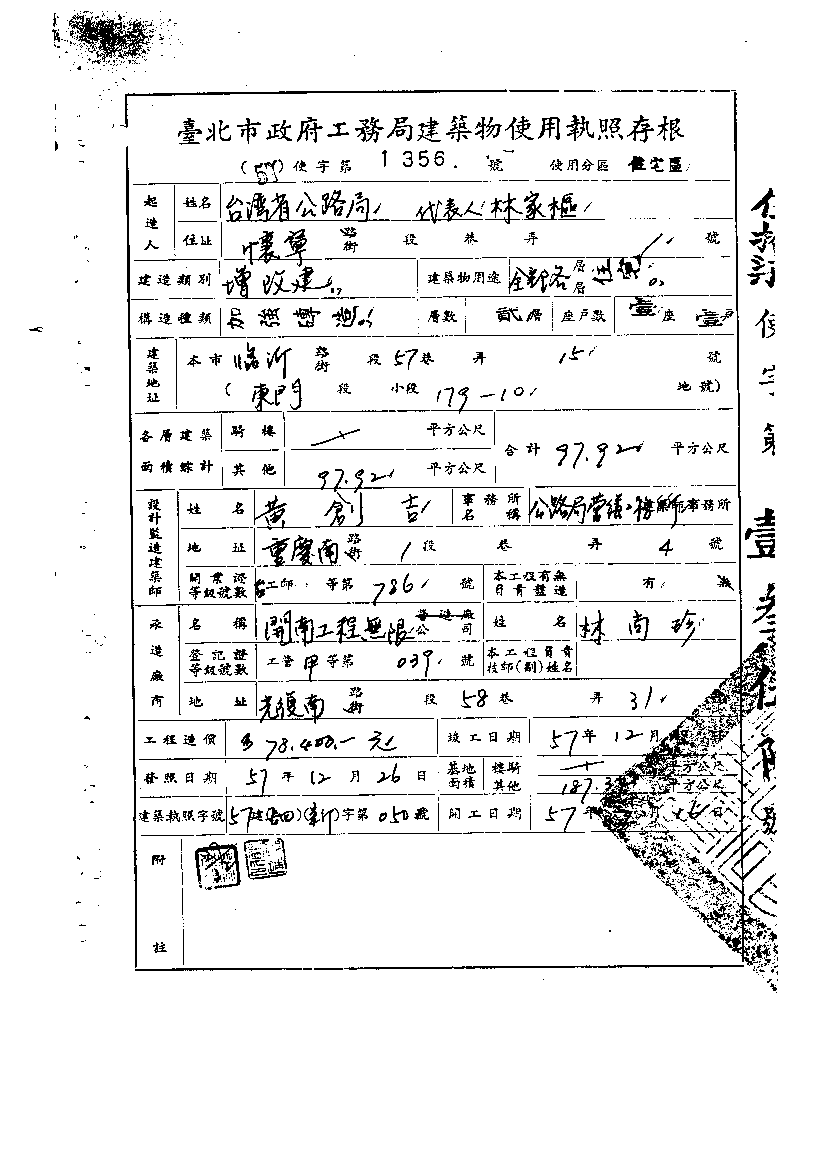 臺北市政府工務局建築物使用執照存根
(57)使字第 1356. 號 使用分區 住宅區
起造人 姓名 台灣省公路局 代表人 林家樞
住址 懷寧 路街 段 巷 弄 1 號
建造類別 增改建 建築物用途 層層
構造種類 加強磚造 層數 貳層 座戶數 壹座 壹戶
建築地址 本市 臨沂 路街 段 57 巷 弄 15 號
(東門 段 小段 179-10 地號)
各層建築面積綜計 騎樓 平方公尺 合計 97.92 平方公尺
其他 97.92 平方公尺
設計監造建築師 姓名 黃創吉 事務所名稱 公路局營繕 事務所
地址 重慶南 路街 1 段 巷 弄 4 號
開業證等級號數 工師 等第 786 號 本工程有無負責監造 有 無
承造廠商 名稱 開南工程無限 營造廠公司 姓名 林尚珍
登記證等級號數 工營甲等第 039 號 本工程負責技師(副)姓名
地址 光復南 路街 段 58 巷 弄 31
工程造價 $78,400.- 元 竣工日期 57年12月
發照日期 57年12月26日 基地面積 樓騎 平方公尺
其他 187.3 平方公尺
建築執照字號 57建 字第 050 號 開工日期 57年 月 日
附註
使字第 壹 號